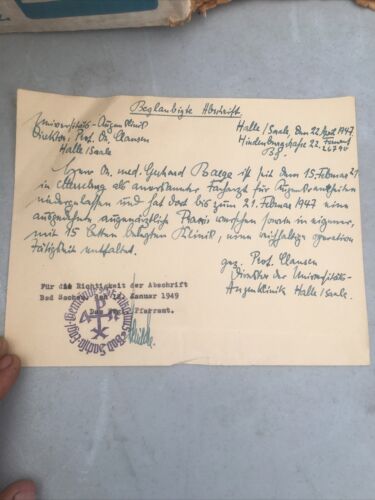 Beglaubigte Abschrift.
Universitäts-Augenklinik
Direktor: Prof. Dr. Clausen
Halle/Saale
Halle/Saale, den 22. April 1947.
Hindenburgstraße 22. Fernruf
26790
Herr Dr. med. Gerhard Baege ist seit dem 15. Februar 21
in als anerkannter Facharzt für Augenkrankheiten
niedergelassen und hat dort bis zum 21. Februar 1947 eine
ausgedehnte augenärztliche Praxis sowie in eigener,
mit 15 Betten belegten Klinik, eine reichhaltige operative
Tätigkeit entfaltet.
gez. Prof. Clausen
Direktor der Universitäts-
Augenklinik Halle/Saale.
Für die Richtigkeit der Abschrift
Bad Sachsa, den Januar 1949
Das Pfarramt.